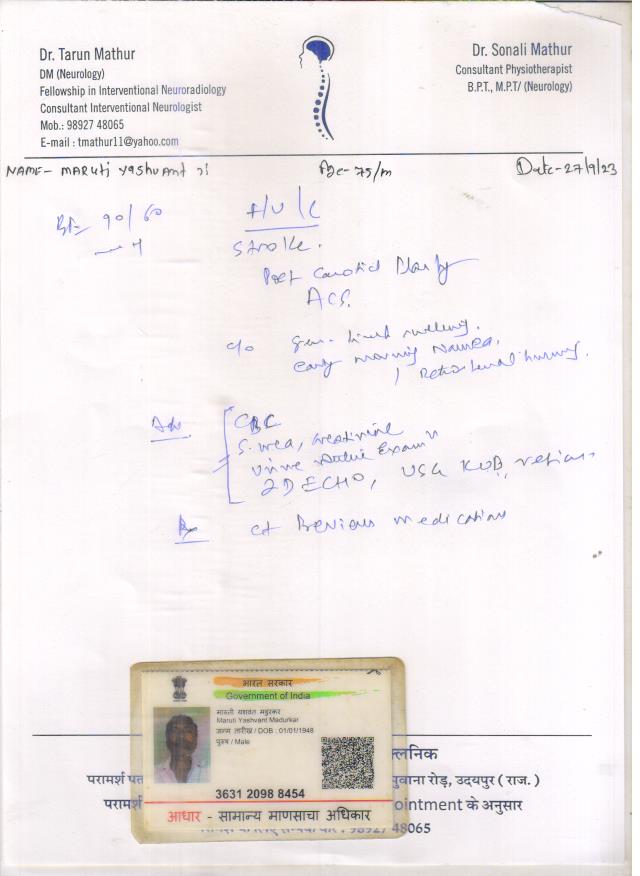 Dr. Tarun Mathur
DM (Neurology)
Fellowship in Interventional Neuroradiology
Consultant Interventional Neurologist
Mob.: 98927 48065
E-mail : tmathur11@yahoo.com
Dr. Sonali Mathur
Consultant Physiotherapist
B.P.T., M.P.T/ (Neurology)
NAME- MARUti YAShVANT JI Age- 75/m Date- 27/9/23
BP- 90/60
F/U/C
Stroke.
Post Carotid
ACS.
c/o swelling.
early morning Nausea,
Adv CBC
S. urea, creatinine
Urine Routine Exam
2D ECHO, USG KUB,
Rx ct Previous medications
भारत सरकार
Government of India
मारुती यशवंत मडुरकर
Maruti Yashvant Madurkar
जन्म तारीख / DOB : 01/01/1948
पुरुष / Male
3631 2098 8454
आधार - सामान्य माणसाचा अधिकार
क्लिनिक
परामर्श रोड़, उदयपुर ( राज. )
के अनुसार
48065